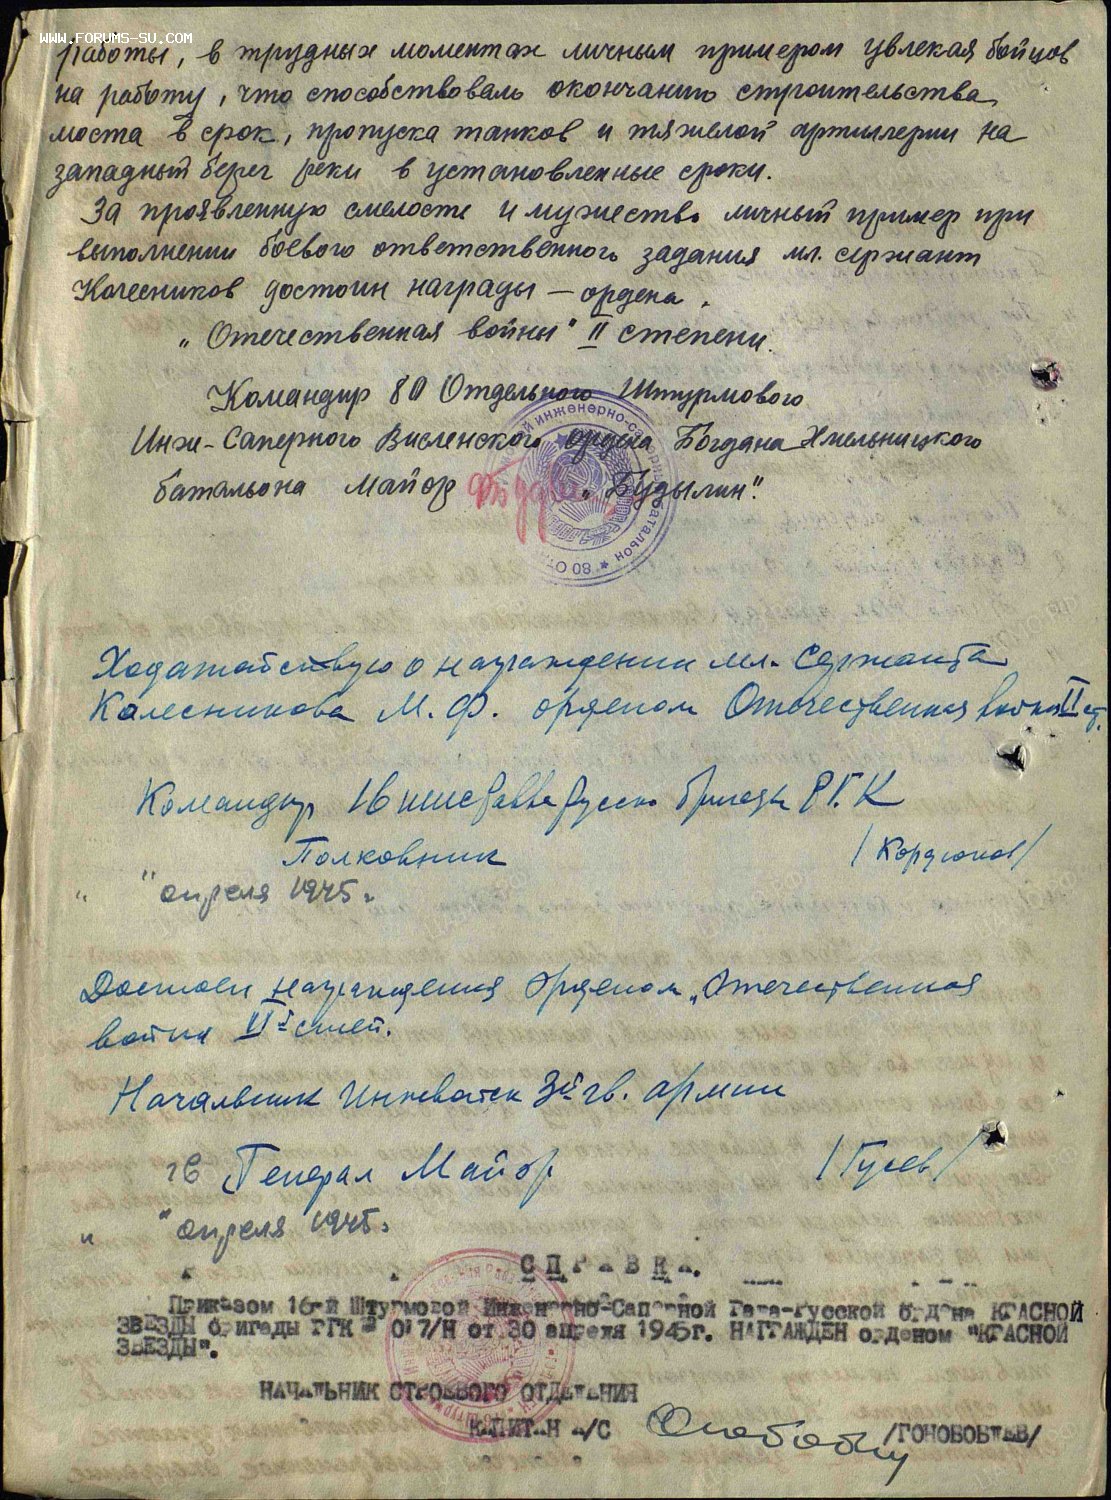 WWW.FORUMS-SU.COM
работы, в трудных моментах личным примером увлекая бойцов
на работу, что способствовало окончанию строительства
моста в срок, пропуска танков и тяжелой артиллерии на
западный берег реки в установленные сроки.
За проявленную смелость и мужество личный пример при
выполнении боевого ответственного задания мл. сержант
Колесников достоин награды — ордена
„Отечественная войны" II степени.
Командир 80 Отдельного Штурмового
Инж-Саперного Висленского ордена Богдана Хмельницкого
батальона Майор „Будылин".
Ходатайствую о награждении мл. Сержанта
Колесникова М. Ф. орденом Отечественная война II ст.
Командир 16 бригады РГК
Полковник /Кордюков/
" " апреля 1945 г.
Достоен награждения Орденом „Отечественная
война II й степ.
Начальник Инжвойск 3й гв. армии
гв Генерал Майор /Гусев/
" " апреля 1945 г.
СПРАВКА.
Приказом 16-й Штурмовой Инженерно-Саперной Рава-Русской ордена КРАСНОЙ
ЗВЕЗДЫ бригады РГК № 017/Н от 30 апреля 1945г. НАГРАЖДЕН орденом "КРАСНОЙ
ЗВЕЗДЫ".
НАЧАЛЬНИК СТРОЕВОГО ОТДЕЛЕНИЯ
КАПИТАН А/С /ГОНОБОБЛЕВ/